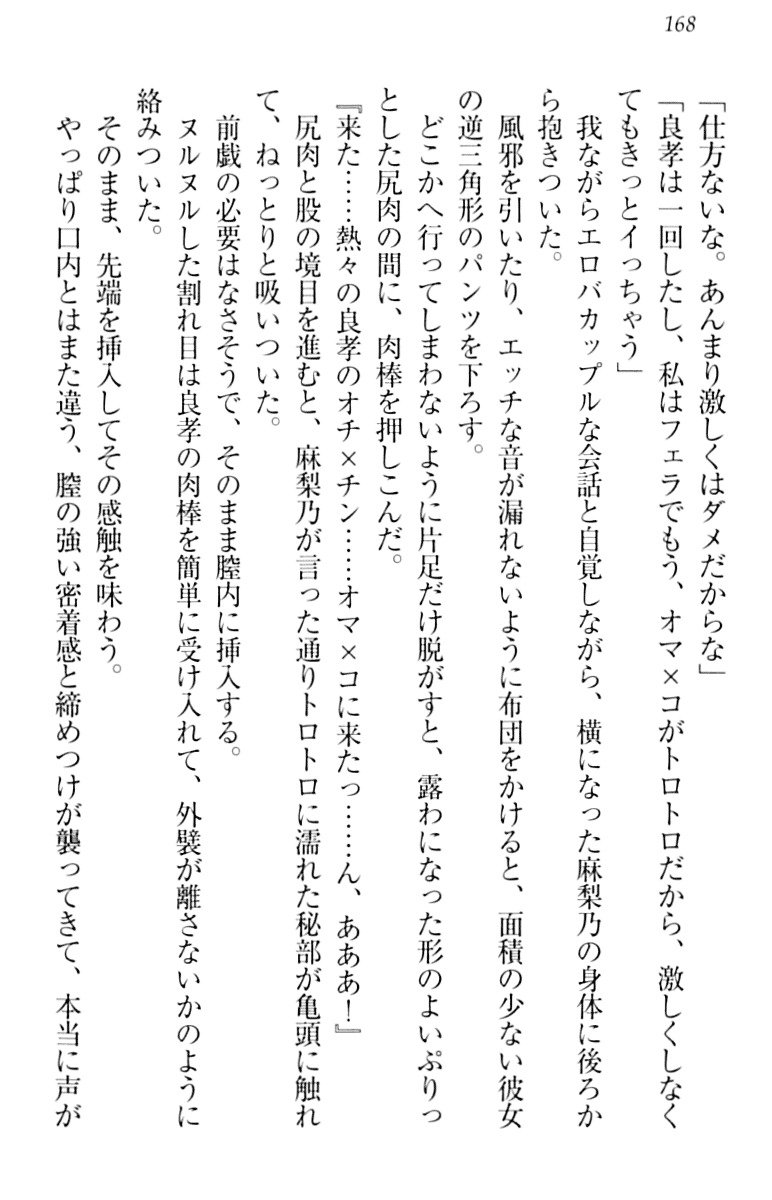 168
「仕方ないな。あんまり激しくはダメだからな」
「良孝は一回したし、私はフェラでもう、オマ×コがトロトロだから、激しくしなく
てもきっとイっちゃう」
我ながらエロバカップルな会話と自覚しながら、横になった麻梨乃の身体に後ろか
ら抱きついた。
風邪を引いたり、エッチな音が漏れないように布団をかけると、面積の少ない彼女
の逆三角形のパンツを下ろす。
どこかへ行ってしまわないように片足だけ脱がすと、露わになった形のよいぷりっ
とした尻肉の間に、肉棒を押しこんだ。
『来た……熱々の良孝のオチ×チン……オマ×コに来たっ……ん、あああ！』
尻肉と股の境目を進むと、麻梨乃が言った通りトロトロに濡れた秘部が亀頭に触れ
て、ねっとりと吸いついた。
前戯の必要はなさそうで、そのまま膣内に挿入する。
ヌルヌルした割れ目は良孝の肉棒を簡単に受け入れて、外襞が離さないかのように
絡みついた。
そのまま、先端を挿入してその感触を味わう。
やっぱり口内とはまた違う、膣の強い密着感と締めつけが襲ってきて、本当に声が